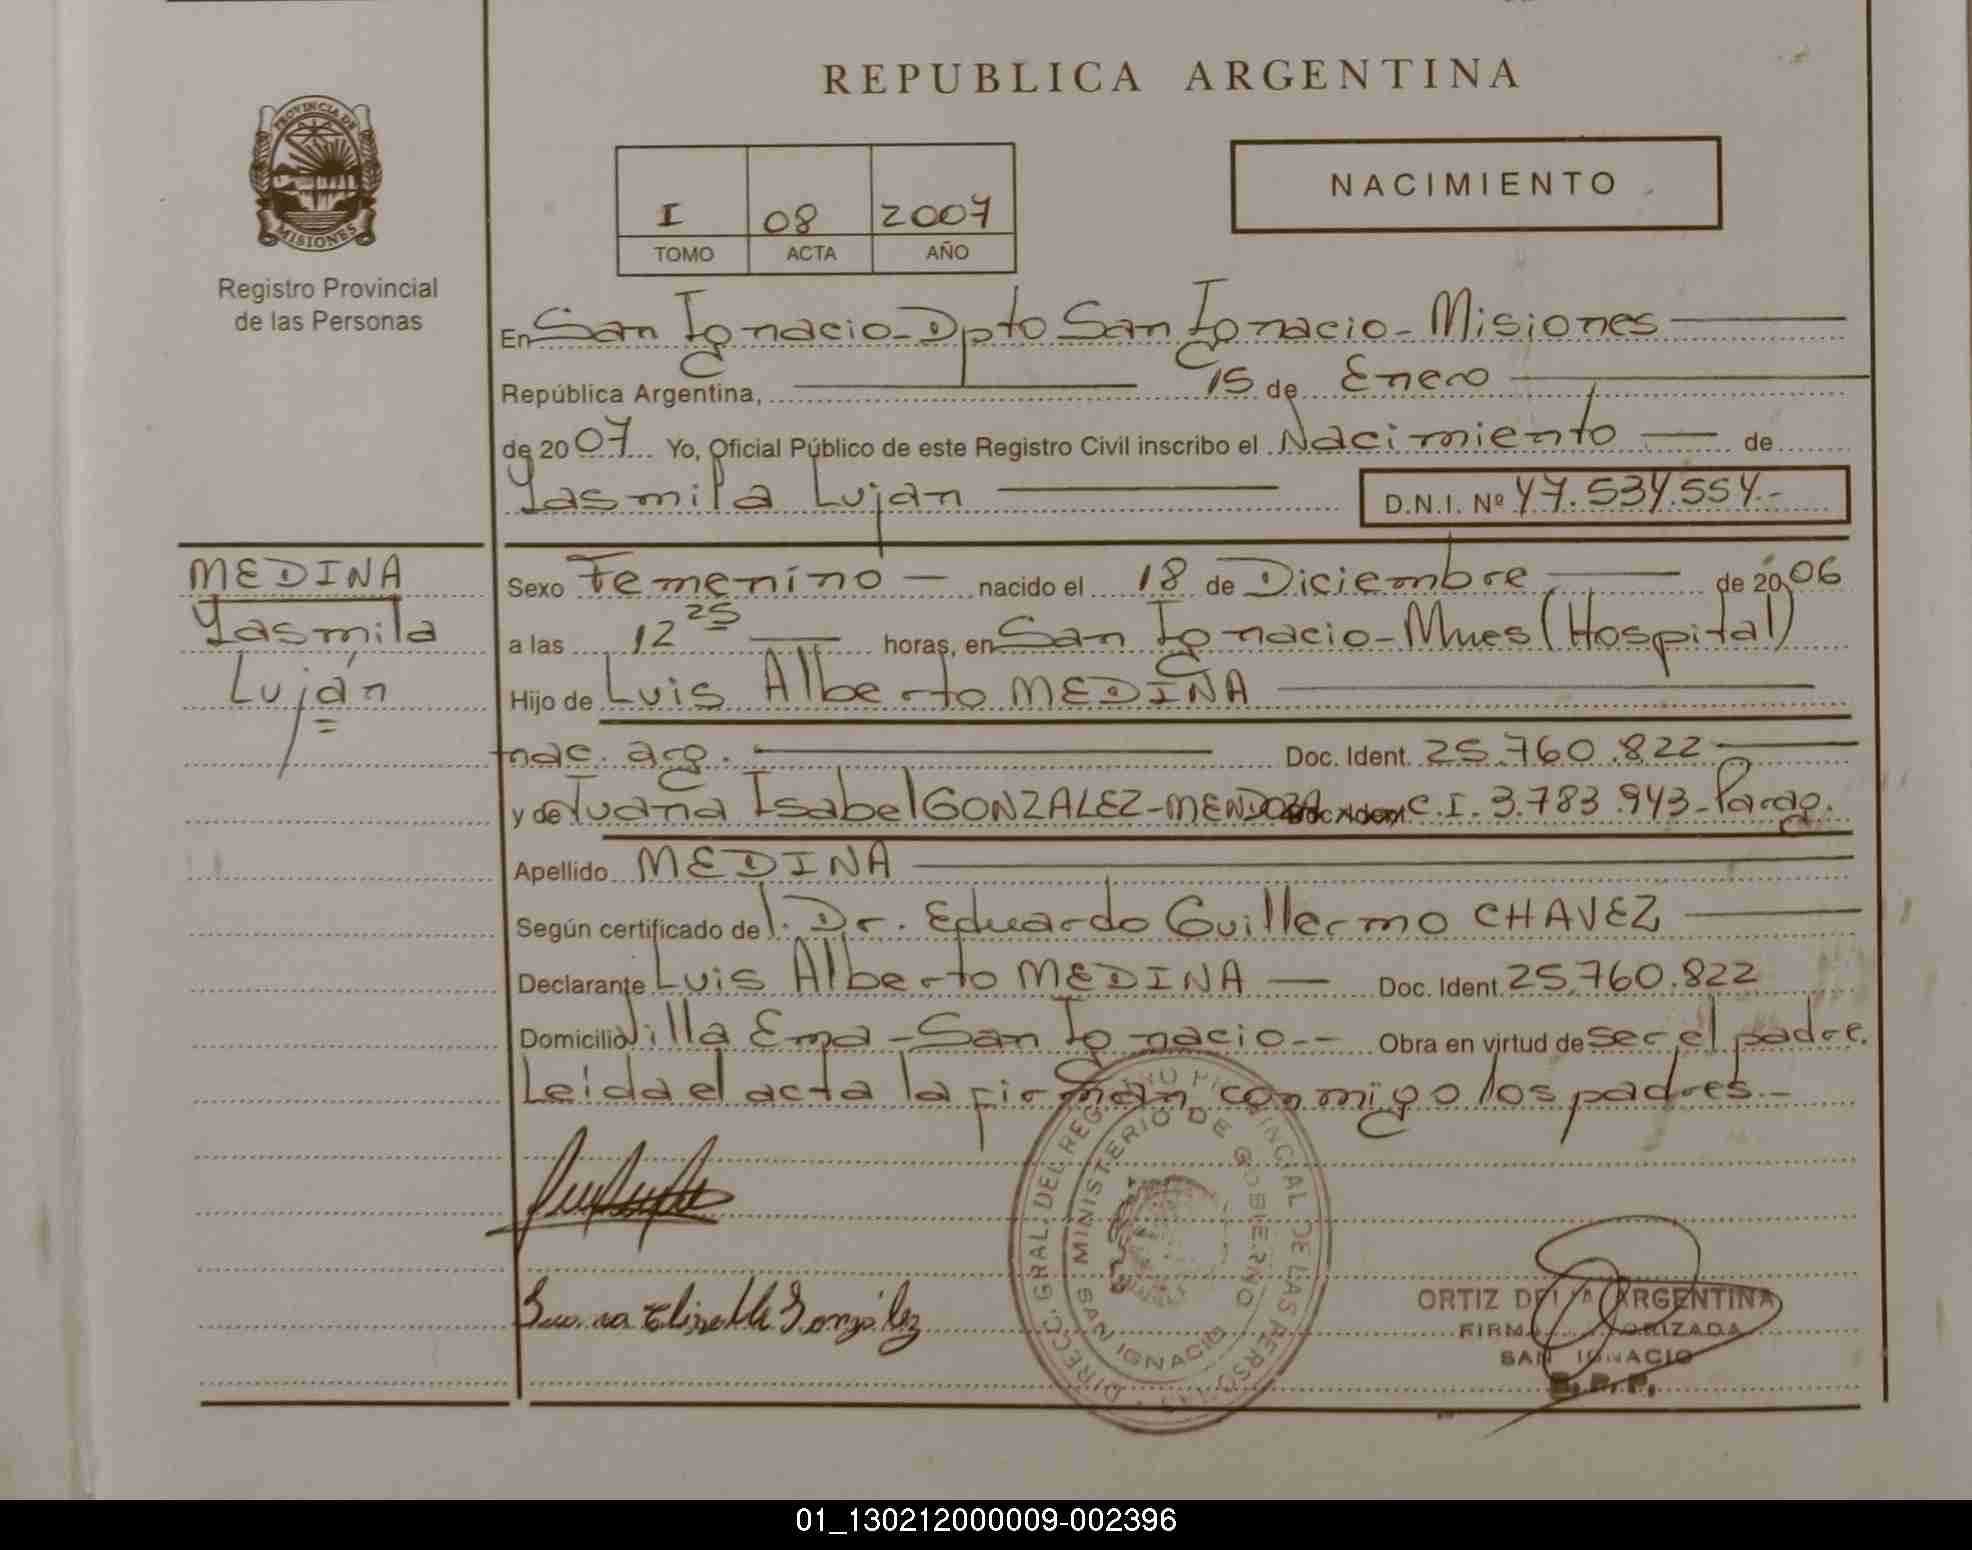 REPUBLICA ARGENTINA
PROVINCIA DE
MISIONES
Registro Provincial
de las Personas
I 08 2007
TOMO ACTA AÑO
NACIMIENTO
En San Ignacio - Dpto San Ignacio - Misiones
República Argentina, 15 de Enero
de 2007 Yo, Oficial Público de este Registro Civil inscribo el Nacimiento — de
Yasmila Lujan
D.N.I. Nº 47.534.554.-
MEDINA
Yasmila
Luján
Sexo Femenino — nacido el 18 de Diciembre de 2006
a las 12 25 horas, en San Ignacio - Mnes (Hospital)
Hijo de Luis Alberto MEDINA
nac. arg. Doc. Ident. 25.760.822
y de Juana Isabel GONZALEZ - MENDOZA C.I. 3.783.943 - Parag.
Apellido MEDINA
Según certificado del. Dr. Eduardo Guillermo CHAVEZ
Declarante Luis Alberto MEDINA — Doc. Ident. 25.760.822
Domicilio Villa Ema - San Ignacio -- Obra en virtud de ser el padre.
Leida el acta la firman conmigo los padres.-
DIRECC. GRAL. DEL REG PROVINCIAL DE LAS PERSONAS
MINISTERIO DE GOBIERNO
SAN IGNACIO
González
ORTIZ ARGENTINA
FIRMA AUTORIZADA
SAN IGNACIO
R. P. P.
01_130212000009-002396